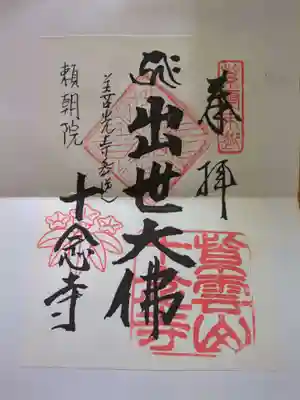 奉拝
出世大佛
善光寺通
頼朝院
十念寺
紫雲山
十念寺